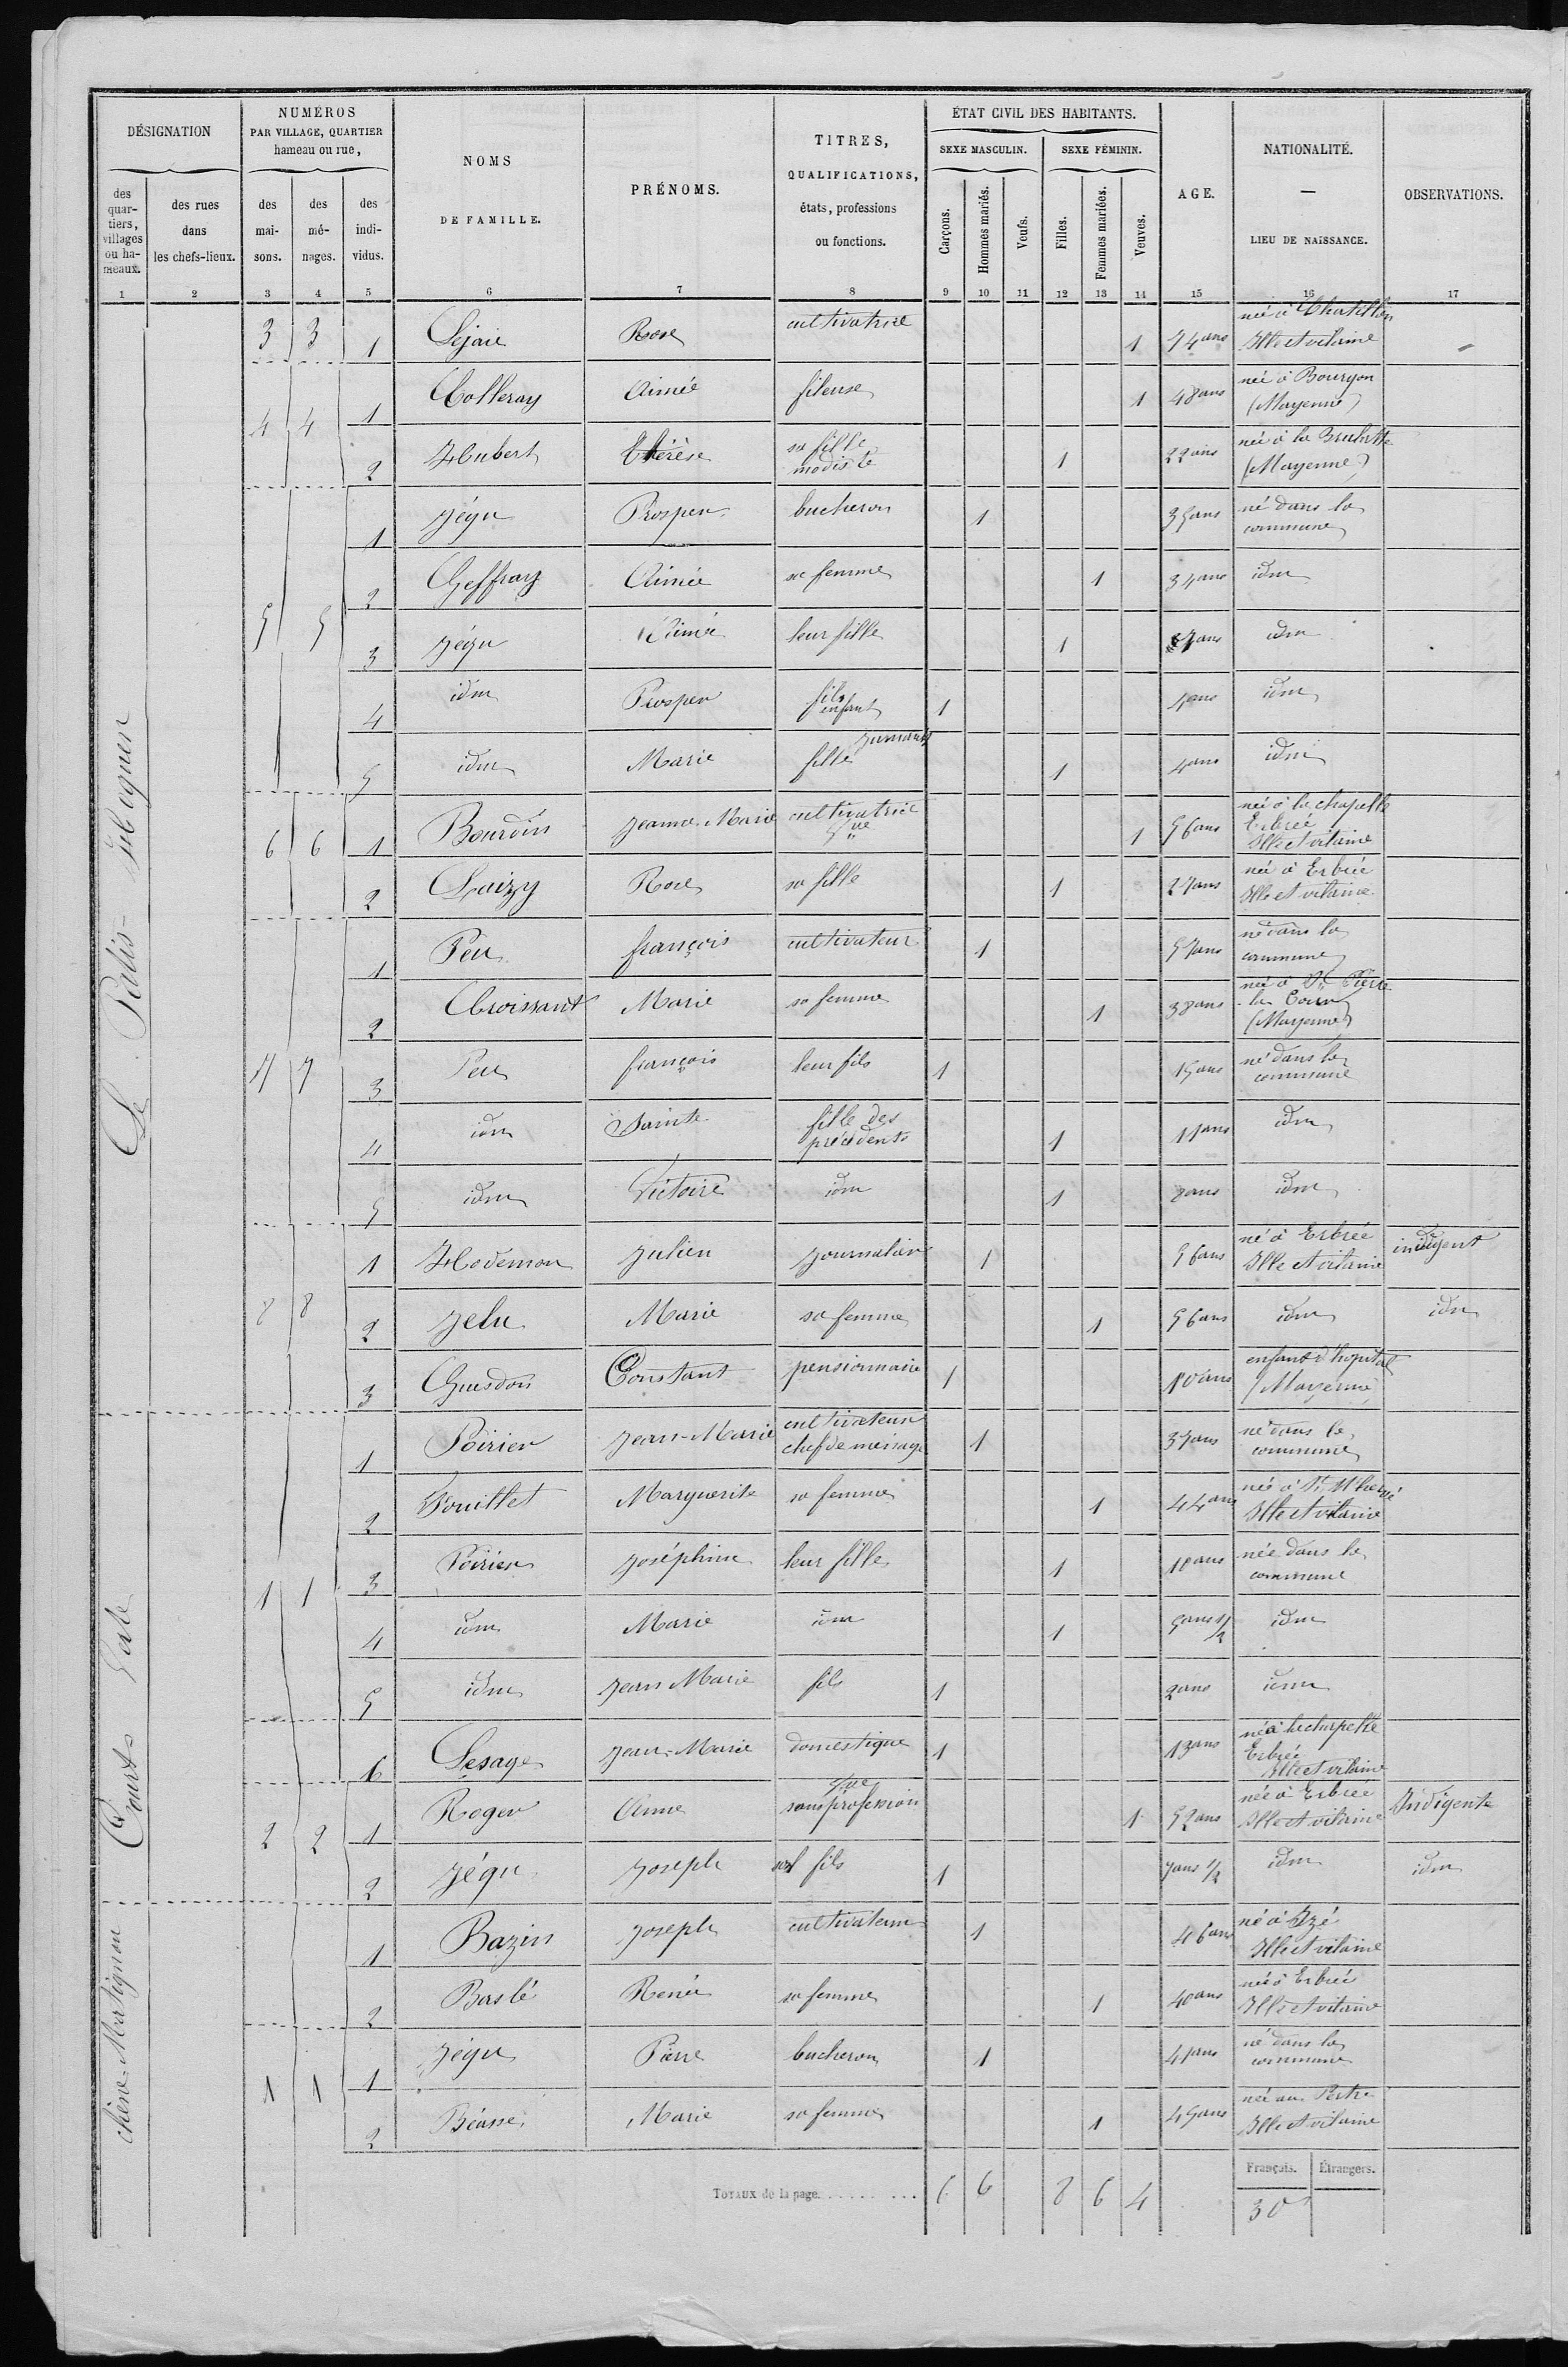 DÉSIGNATION
NUMÉROS
PAR VILLAGE, QUARTIER
hameau ou rue,
NOMS
DE FAMILLE.
PRÉNOMS.
TITRES,
QUALIFICATIONS,
états, professions
ou fonctions.
ÉTAT CIVIL DES HABITANTS.
SEXE MASCULIN.
SEXE FÉMININ.
AGE.
NATIONALITÉ.
—
LIEU DE NAISSANCE.
OBSERVATIONS.
des
quar-
tiers,
villages
ou ha-
meaux.
des rues
dans
les chefs-lieux.
des
mai-
sons.
des
mé-
nages.
des
indi-
vidus.
Garçons.
Hommes mariés.
Veufs.
Filles.
Femmes mariées.
Veuves.
1 2 3 4 5 6 7 8 9 10 11 12 13 14 15 16 17
Le Patis
3 3 1 Lejaie Rose cultivatrice 1 74 ans née à Chatillon Ille et vilaine
4 4 1 Colleray Aimée fileuse 1 48 ans née à Bourgon (Mayenne)
2 Hubert Thérèse sa fille modiste 1 22 ans née à la Brulatte (Mayenne)
5 5 1 Jégu Prosper bucheron 1 35 ans né dans la commune
2 Geffray Aimée sa femme 1 34 ans idm
3 Jégu Aimée leur fille 1 7 ans idm
4 idm Prosper fils enfant 1 4 ans idm
5 idm Marie fille jumeaux 1 4 ans idm
6 6 1 Bourdin Jeanne-Marie cultivatrice Vve 1 56 ans née à la chapelle Erbrée Ille et vilaine
2 Laizy Rose sa fille 1 27 ans née à Erbrée Ille et vilaine
7 7 1 Peu françois cultivateur 1 57 ans né dans la commune
2 Croissant Marie sa femme 1 38 ans née à St Pierre la Cour (Mayenne)
3 Peu françois leur fils 1 15 ans né dans la commune
4 idm Sainte fille des précédents 1 11 ans idm
5 idm Victoire idm 1 8 ans idm
8 8 1 Hodemon Julien journalier 1 56 ans né à Erbrée Ille et vilaine indigent
2 Jelu Marie sa femme 1 56 ans idm idm
3 Guesdon Constant pensionnaire 1 10 ans enfant d'hopital (Mayenne)
Courts
1 1 1 Poirier Jean-Marie cultivateur chef de ménage 1 37 ans né dans la commune
2 Fouillet Marguerite sa femme 1 44 ans née à St M'hervé Ille et vilaine
3 Poirier Joséphine leur fille 1 10 ans née dans la commune
4 idm Marie idm 1 5 ans 1/2 idm
5 idm Jean Marie fils 1 2 ans idm
6 Lesage Jean-Marie domestique 1 13 ans né à la chapelle Erbrée Ille et vilaine
2 2 1 Roger Anne Vve sans profession 1 52 ans née à Erbrée Ille et vilaine Indigente
2 Jégu Joseph fils 1 7 ans 1/2 idm idm
chêne-Matignon
1 Bazin Joseph cultivateur 1 46 ans né à Izé Ille et vilaine
2 Baslé Renée sa femme 1 40 ans née à Erbrée Ille et vilaine
1 1 1 Jégu Pierre bucheron 1 41 ans né dans la commune
2 Béasse Marie sa femme 1 45 ans née au Pertre Ille et vilaine
TOTAUX de la page. 6 6 8 6 4
Français. Étrangers.
30